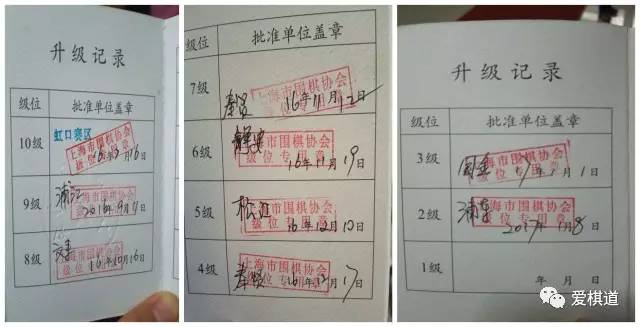 升级记录
级位 批准单位盖章
10级 虹口赛区
上海市围棋协会
级位专用章
年 月16日
9级 浦江
上海市围棋协会
2016年9月11日
8级
上海市围棋协会
级位专用章
16年10月16日
级位 批准单位盖章
7级
上海市围棋协会
奉贤 16年11月12日
6级
上海市围棋协会
级位专用章
16年11月19日
5级 松江
上海市围棋协会
级位专用章
16年12月10日
4级
上海市围棋协会
级位专用章
奉贤 16年12月17日
升级记录
级位 批准单位盖章
3级
市围棋协会
位专用章
月1日
2级 浦东
海市围棋协会
位专用章
2017年1月8日
1级
年 月 日
爱棋道